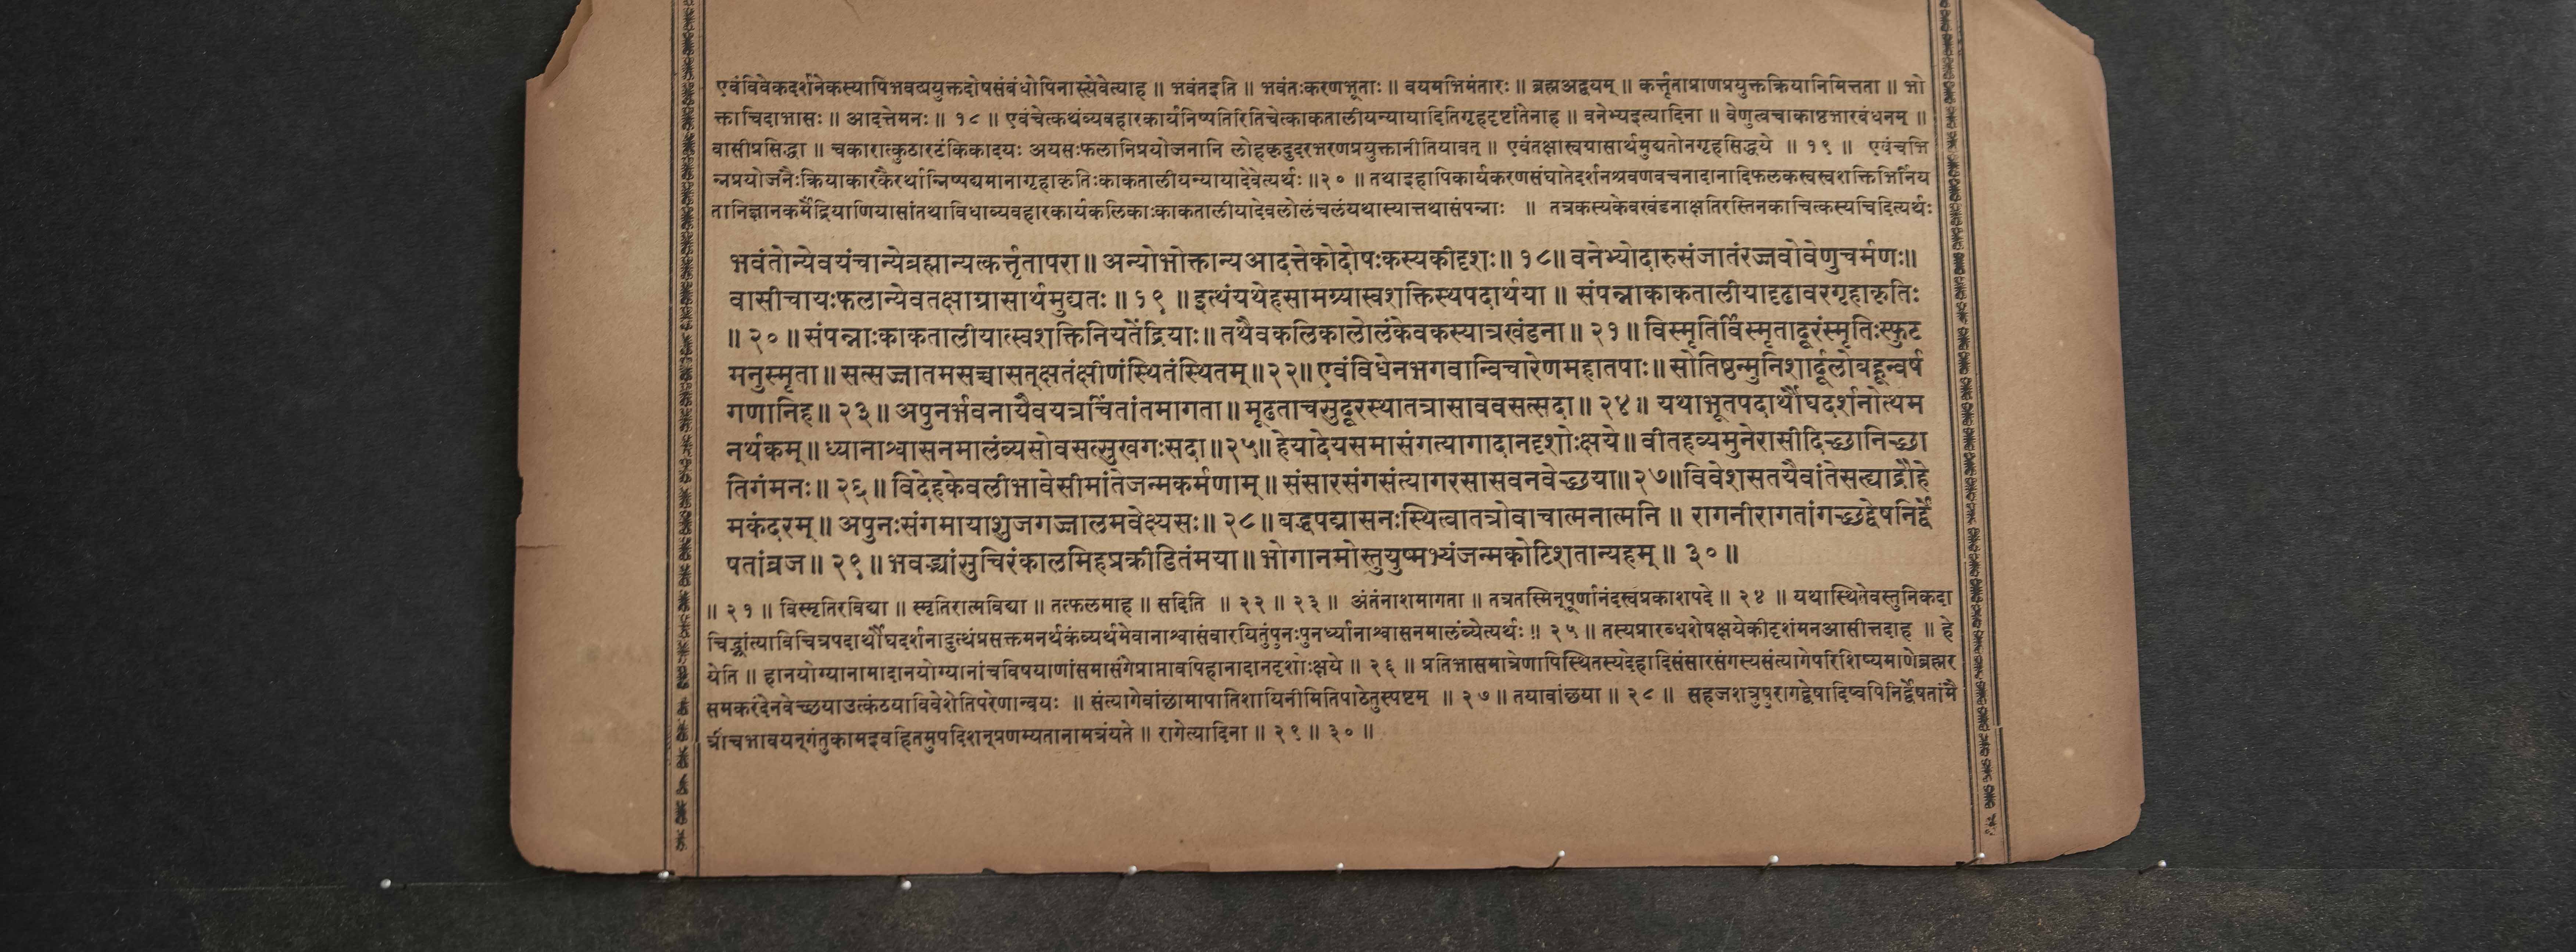 एवंविवेकदर्शनेकस्यापिभवत्प्रयुक्तदोषसंबंधोपिनास्त्येवेत्याह ॥ भवंतइति ॥ भवंतःकरणभूताः ॥ वयमभिमंतारः ॥ ब्रह्मअद्वयम् ॥ कर्त्तृताप्राणप्रयुक्तक्रियानिमित्तता ॥ भो
क्ताचिदाभासः ॥ आदत्तेमनः ॥ १८ ॥ एवंचेत्कथंव्यवहारकार्यनिष्पतिरितिचेत्काकतालीयन्यायादितिगृहदृष्टांतेनाह ॥ वनेभ्यइत्यादिना ॥ वेणुत्वचाकाष्ठभारबंधनम् ॥
वासीप्रसिद्धा ॥ चकारात्कुठारटंकिकादयः अयसःफलानिप्रयोजनानि लोहकृदुदरभरणप्रयुक्तानीतियावत् ॥ एवंतक्षास्वग्रासार्थमुद्यतोनगृहसिद्धये ॥ १९ ॥ एवंचभि
न्नप्रयोजनैःक्रियाकारकैरर्थान्निष्पद्यमानागृहाकृतिःकाकतालीयन्यायादेवेत्यर्थः ॥२० ॥ तथाइहापिकार्यकरणसंघातेदर्शनश्रवणवचनादानादिफलकस्वस्वशक्तिभिर्निय
तानिज्ञानकर्मेंद्रियाणियासांतथाविधाव्यवहारकार्यकलिकाःकाकतालीयादेवलोलंचलंयथास्यात्तथासंपन्नाः ॥ तत्रकस्यकेवखंडनाक्षतिरस्तिनकाचित्कस्यचिदित्यर्थः
भवंतोन्येवयंचान्येब्रह्मान्यत्कर्त्तृतापरा ॥ अन्योभोक्तान्यआदत्तेकोदोषःकस्यकीदृशः ॥ १८ ॥ वनेभ्योदारुसंजातंरज्जवोवेणुचर्मणः ॥
वासीचायःफलान्येवतक्षाग्रासार्थमुद्यतः ॥ १९ ॥ इत्थंयथेहसामग्र्यास्वशक्तिस्थपदार्थया ॥ संपन्नाकाकतालीयादृढावरगृहाकृतिः
॥ २० ॥ संपन्नाःकाकतालीयात्स्वशक्तिनियतेंद्रियाः ॥ तथैवकलिकालोलंकेवकस्यात्रखंडना ॥ २१ ॥ विस्मृतिर्विस्मृतादूरंस्मृतिःस्फुट
मनुस्मृता ॥ सत्सज्जातमसच्चासत्क्षतंक्षीणंस्थितंस्थितम् ॥ २२ ॥ एवंविधेनभगवान्विचारेणमहातपाः ॥ सोतिष्ठन्मुनिशार्दूलोबहून्वर्ष
गणानिह ॥ २३ ॥ अपुनर्भवनायैवयत्रचिंतांतमागता ॥ मूढताचसुदूरस्थातत्रासाववसत्सदा ॥ २४ ॥ यथाभूतपदार्थौघदर्शनोत्थम
नर्थकम् ॥ ध्यानाश्वासनमालंब्यसोवसत्सुखगःसदा ॥ २५ ॥ हेयादेयसमासंगत्यागादानदृशोःक्षये ॥ वीतहव्यमुनेरासीदिच्छानिच्छा
तिगंमनः ॥ २६ ॥ विदेहकेवलीभावेसीमांतेजन्मकर्मणाम् ॥ संसारसंगसंत्यागरसासवनवेच्छया ॥ २७ ॥ विवेशसतयैवांतेसत्याद्रौहे
मकंदरम् ॥ अपुनःसंगमायाशुजगज्जालमवेक्ष्यसः ॥ २८ ॥ बद्धपद्मासनःस्थित्वातत्रोवाचात्मनात्मनि ॥ रागनीरागतांगच्छद्वेषनिर्द्वे
षतांव्रज ॥ २९ ॥ भवद्भ्यांसुचिरंकालमिहप्रक्रीडितंमया ॥ भोगानमोस्तुयुष्मभ्यंजन्मकोटिशतान्यहम् ॥ ३० ॥
॥ २१ ॥ विस्मृतिरविद्या ॥ स्मृतिरात्मविद्या ॥ तत्फलमाह ॥ सदिति ॥ २२ ॥ २३ ॥ अंतंनाशमागता ॥ तत्रतस्मिन्पूर्णानंदस्वप्रकाशपदे ॥ २४ ॥ यथास्थितेवस्तुनिकदा
चिद्भ्रांत्याविचित्रपदार्थौघदर्शनादुत्थंप्रसक्तमनर्थकंव्यर्थमेवानाश्वासंवारयितुंपुनःपुनर्ध्यानाश्वासनमालंब्येत्यर्थः ॥ २५ ॥ तस्यप्रारब्धशेषक्षयेकीदृशंमनआसीत्तदाह ॥ हे
येति ॥ हानयोग्यानामादानयोग्यानांचविषयाणांसमासंगेप्राप्तावपिहानादानदृशोःक्षये ॥ २६ ॥ प्रतिभासमात्रेणापिस्थितस्यदेहादिसंसारसंगस्यसंत्यागेपरिशिष्यमाणेब्रह्मर
समकरंदेनवेच्छयाउत्कंठयाविवेशेतिपरेणान्वयः ॥ संत्यागेवांछामापातिशायिनीमितिपाठेतुस्पष्टम् ॥ २७ ॥ तयावांछया ॥ २८ ॥ सहजशत्रुषुरागद्वेषादिष्वपिनिर्द्वेषतांमै
त्रींचभावयन्गंतुकामइवहितमुपदिशन्प्रणम्यतानामंत्रयते ॥ रागेत्यादिना ॥ २९ ॥ ३० ॥